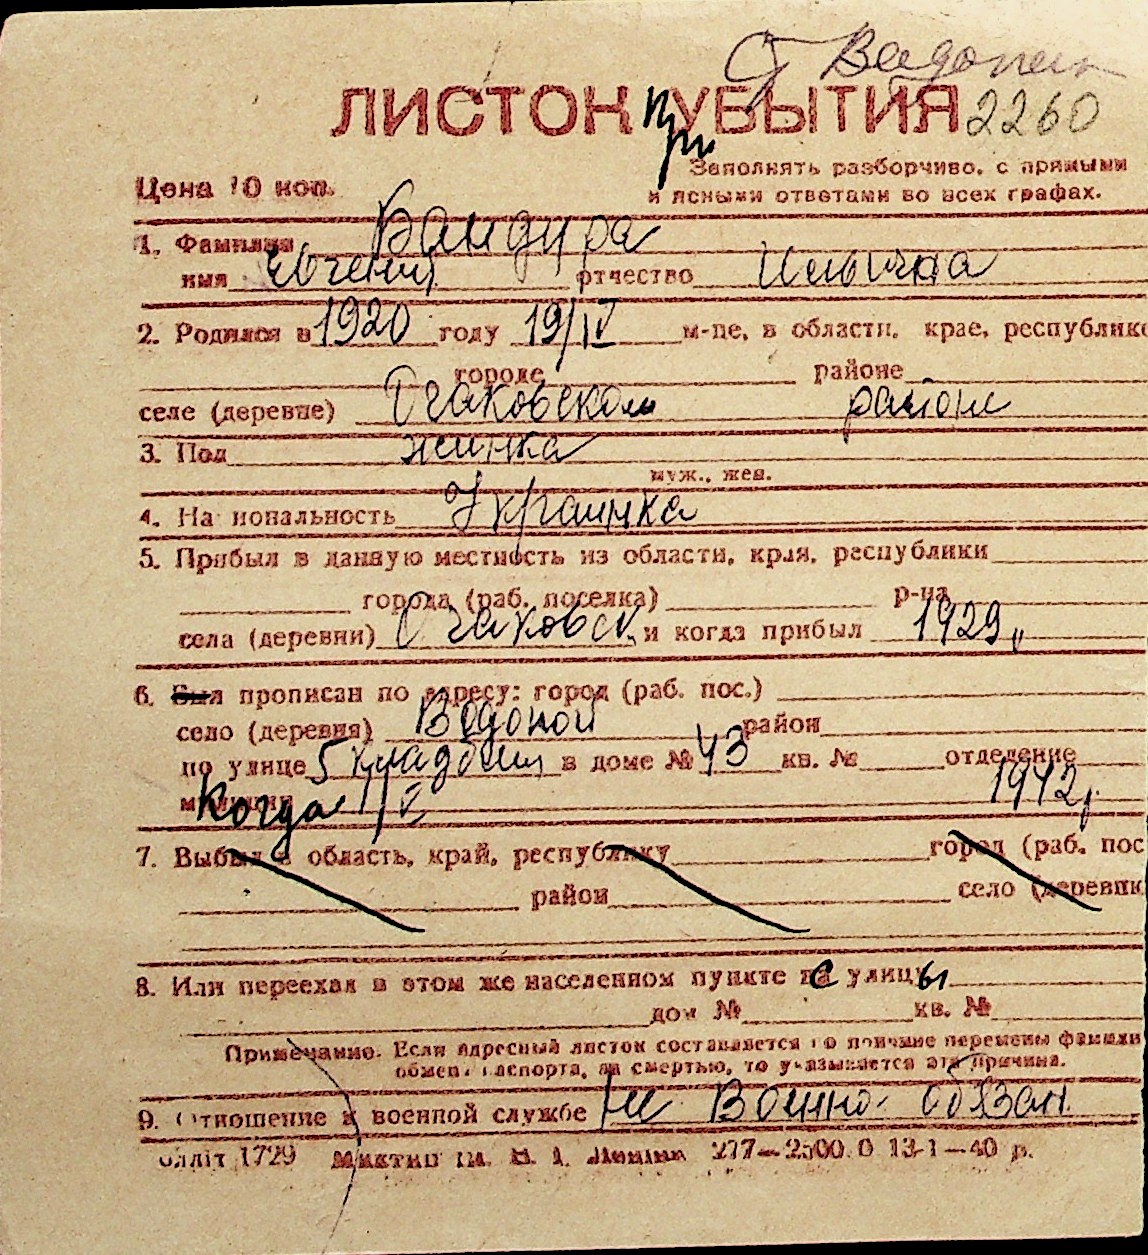 с Вадопой
ЛИСТОК при УБЫТИЯ 2260
Заполнять разборчиво, с прямыми
Цена 10 коп. и ясными ответами во всех графах.
1. Фамилия Бандура
имя Евгения отчество Ильична
2. Родился в 1920 году 19/IV м-це, в области, крае, республике
городе районе
селе (деревне) Очаковском районе
3. Пол жинка
муж., жен.
4. Национальность Украинка
5. Прибыл в данную местность из области, края, республики
города (раб. поселка) р-на
села (деревни) Очаковск и когда прибыл 1929
6. Был прописан по адресу: город (раб. пос.)
село (деревня) Водопой район
по улице 5 в доме № 43 кв. № отделение
милиции Когда 1/V 1942г.
7. Выбыл в область, край, республику город (раб. пос
район село (деревня
8. Или переехал в этом же населенном пункте с улицы
дом № кв. №
Примечание. Если адресный листок составляется по причине перемены фамилии
обмена паспорта, за смертью, то указывается эта причина.
9. Отношение к военной службе Не Военно-обязан.
облліт 1729 Миктип ім. В. І. Леніна 277—2500.0 13-1—40 р.